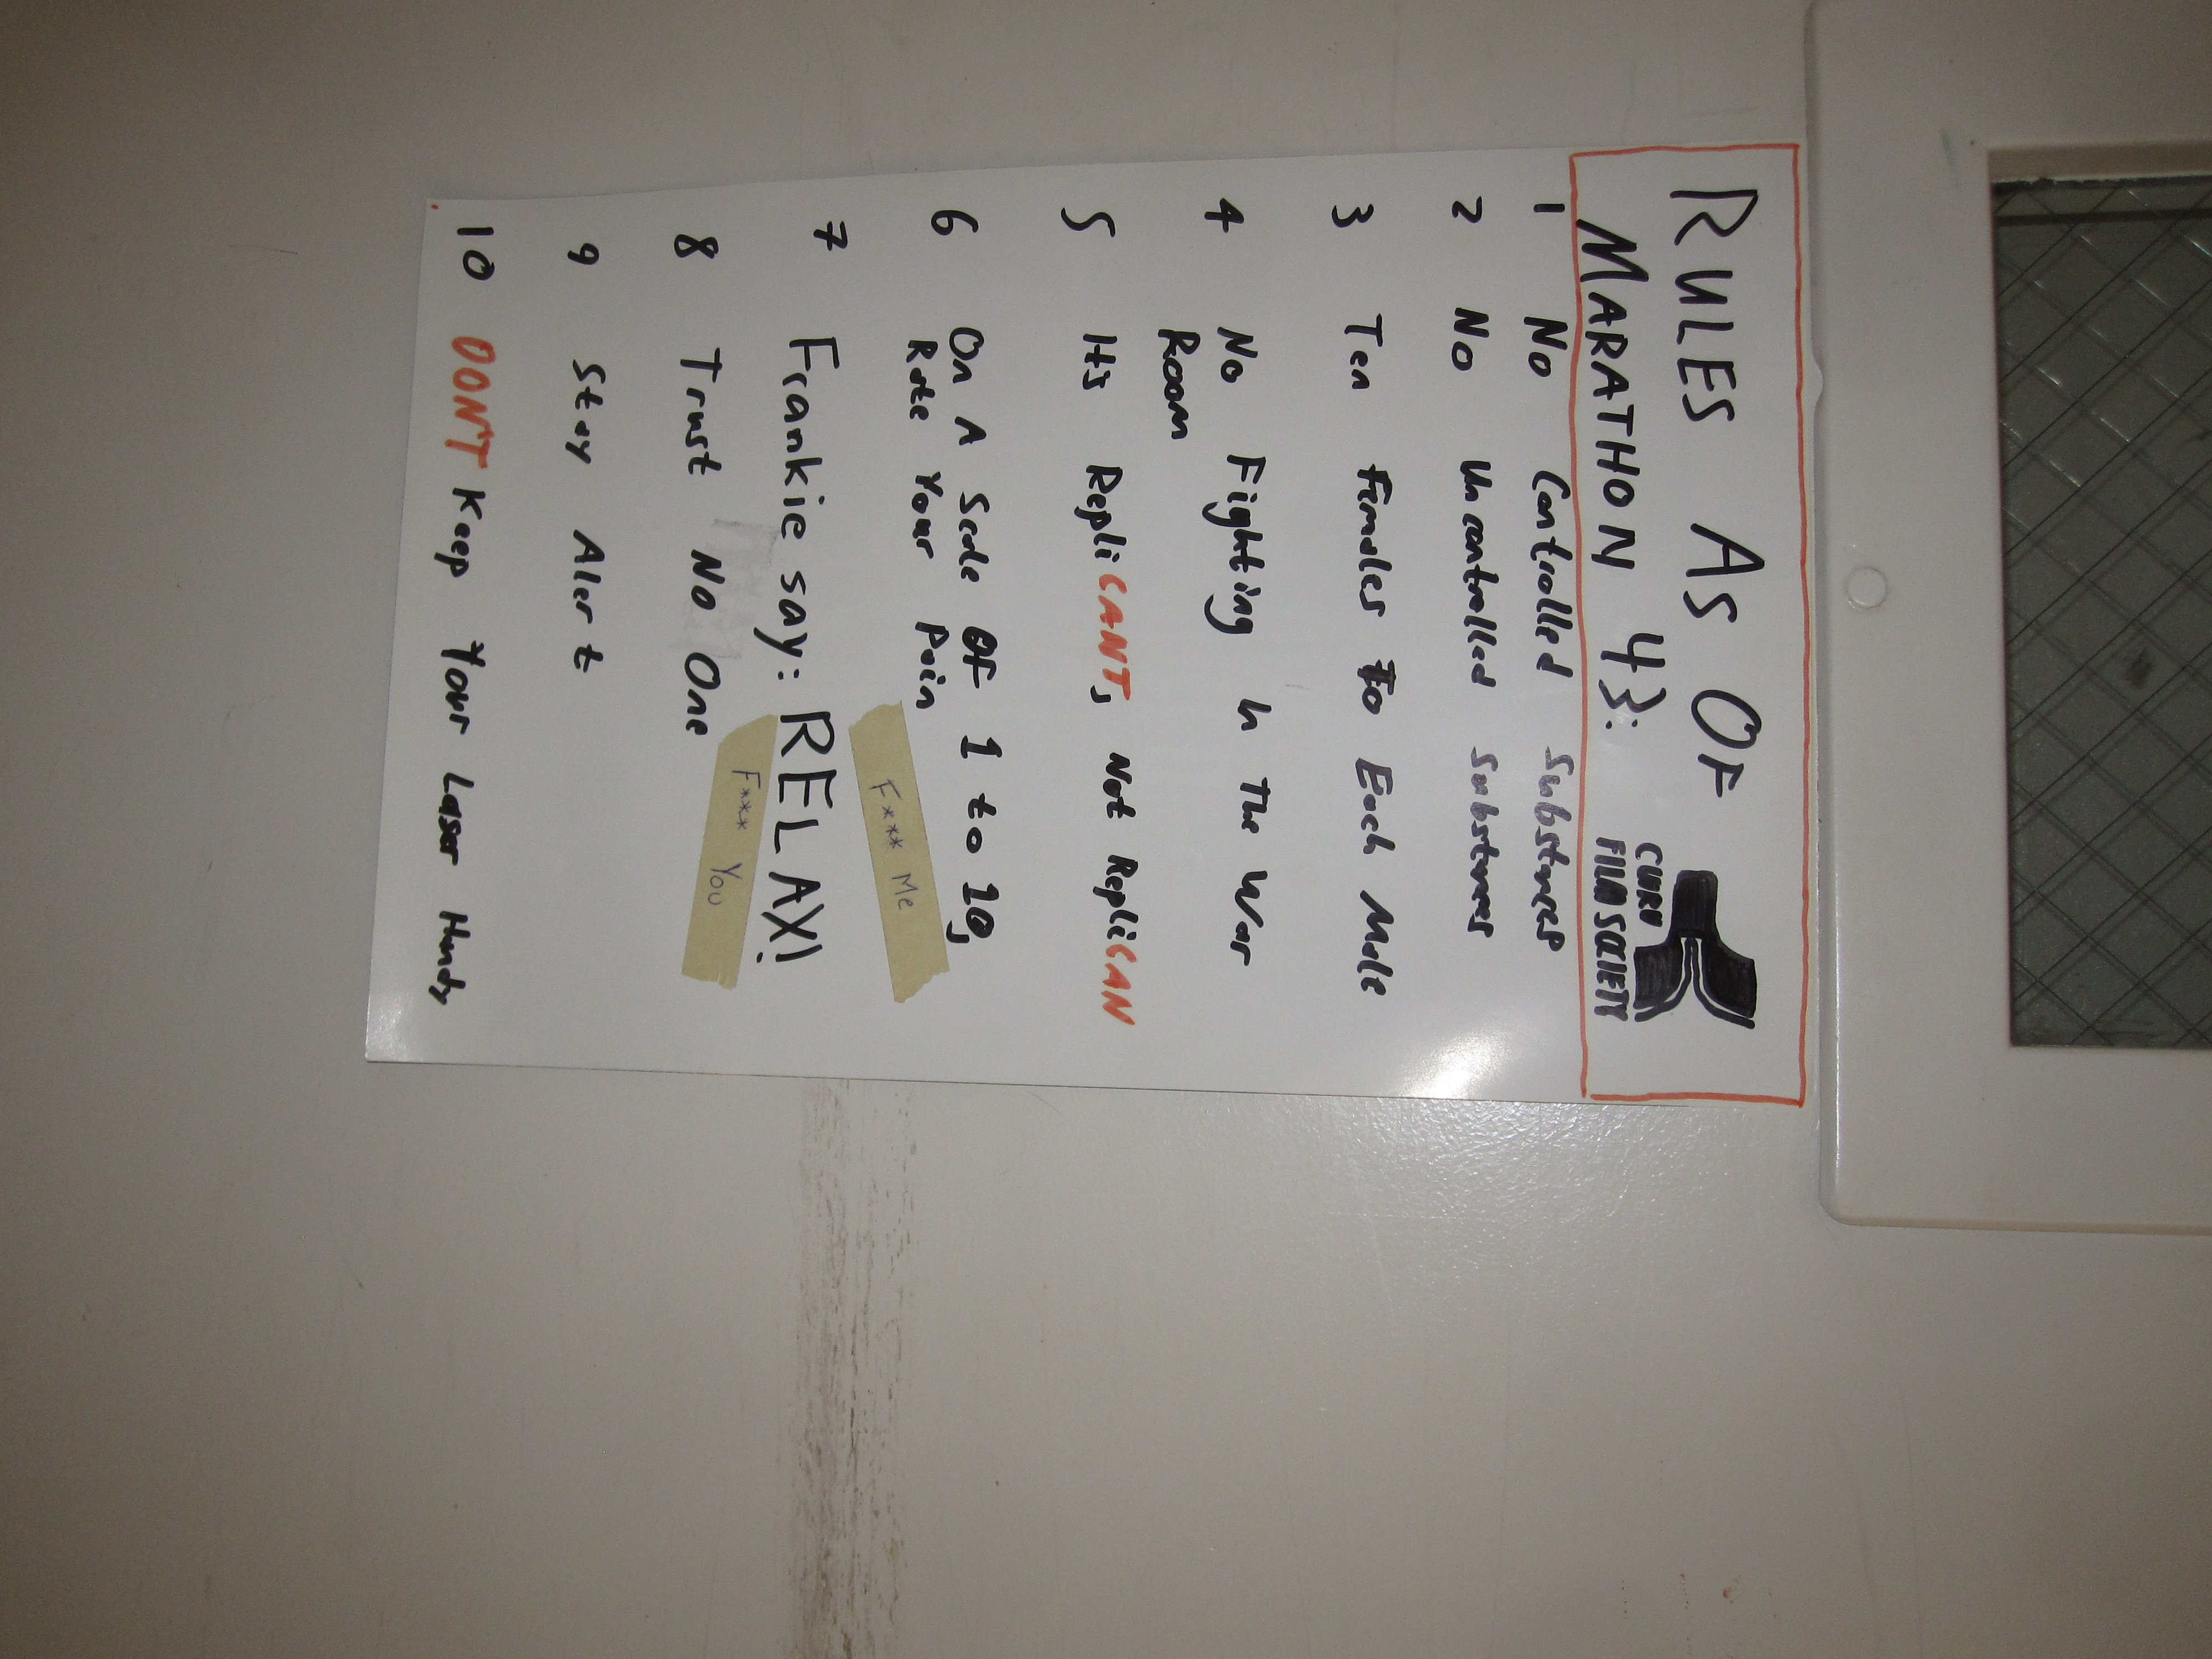 RULES AS OF
MARATHON 43:
CWRU
FILM SOCIETY
1 No Controlled Substances
2 No Uncontrolled Substances
3 Ten Females To Each Male
4 No Fighting In The War
Room
5 It's RepliCANT, Not RepliCAN
6 On A Scale OF 1 to 10,
Rate Your Pain
F*** Me
7 Frankie say: RELAX!
F*** You
8 Trust No One
9 Stay Alert
10 DON'T Keep Your Laser Handy